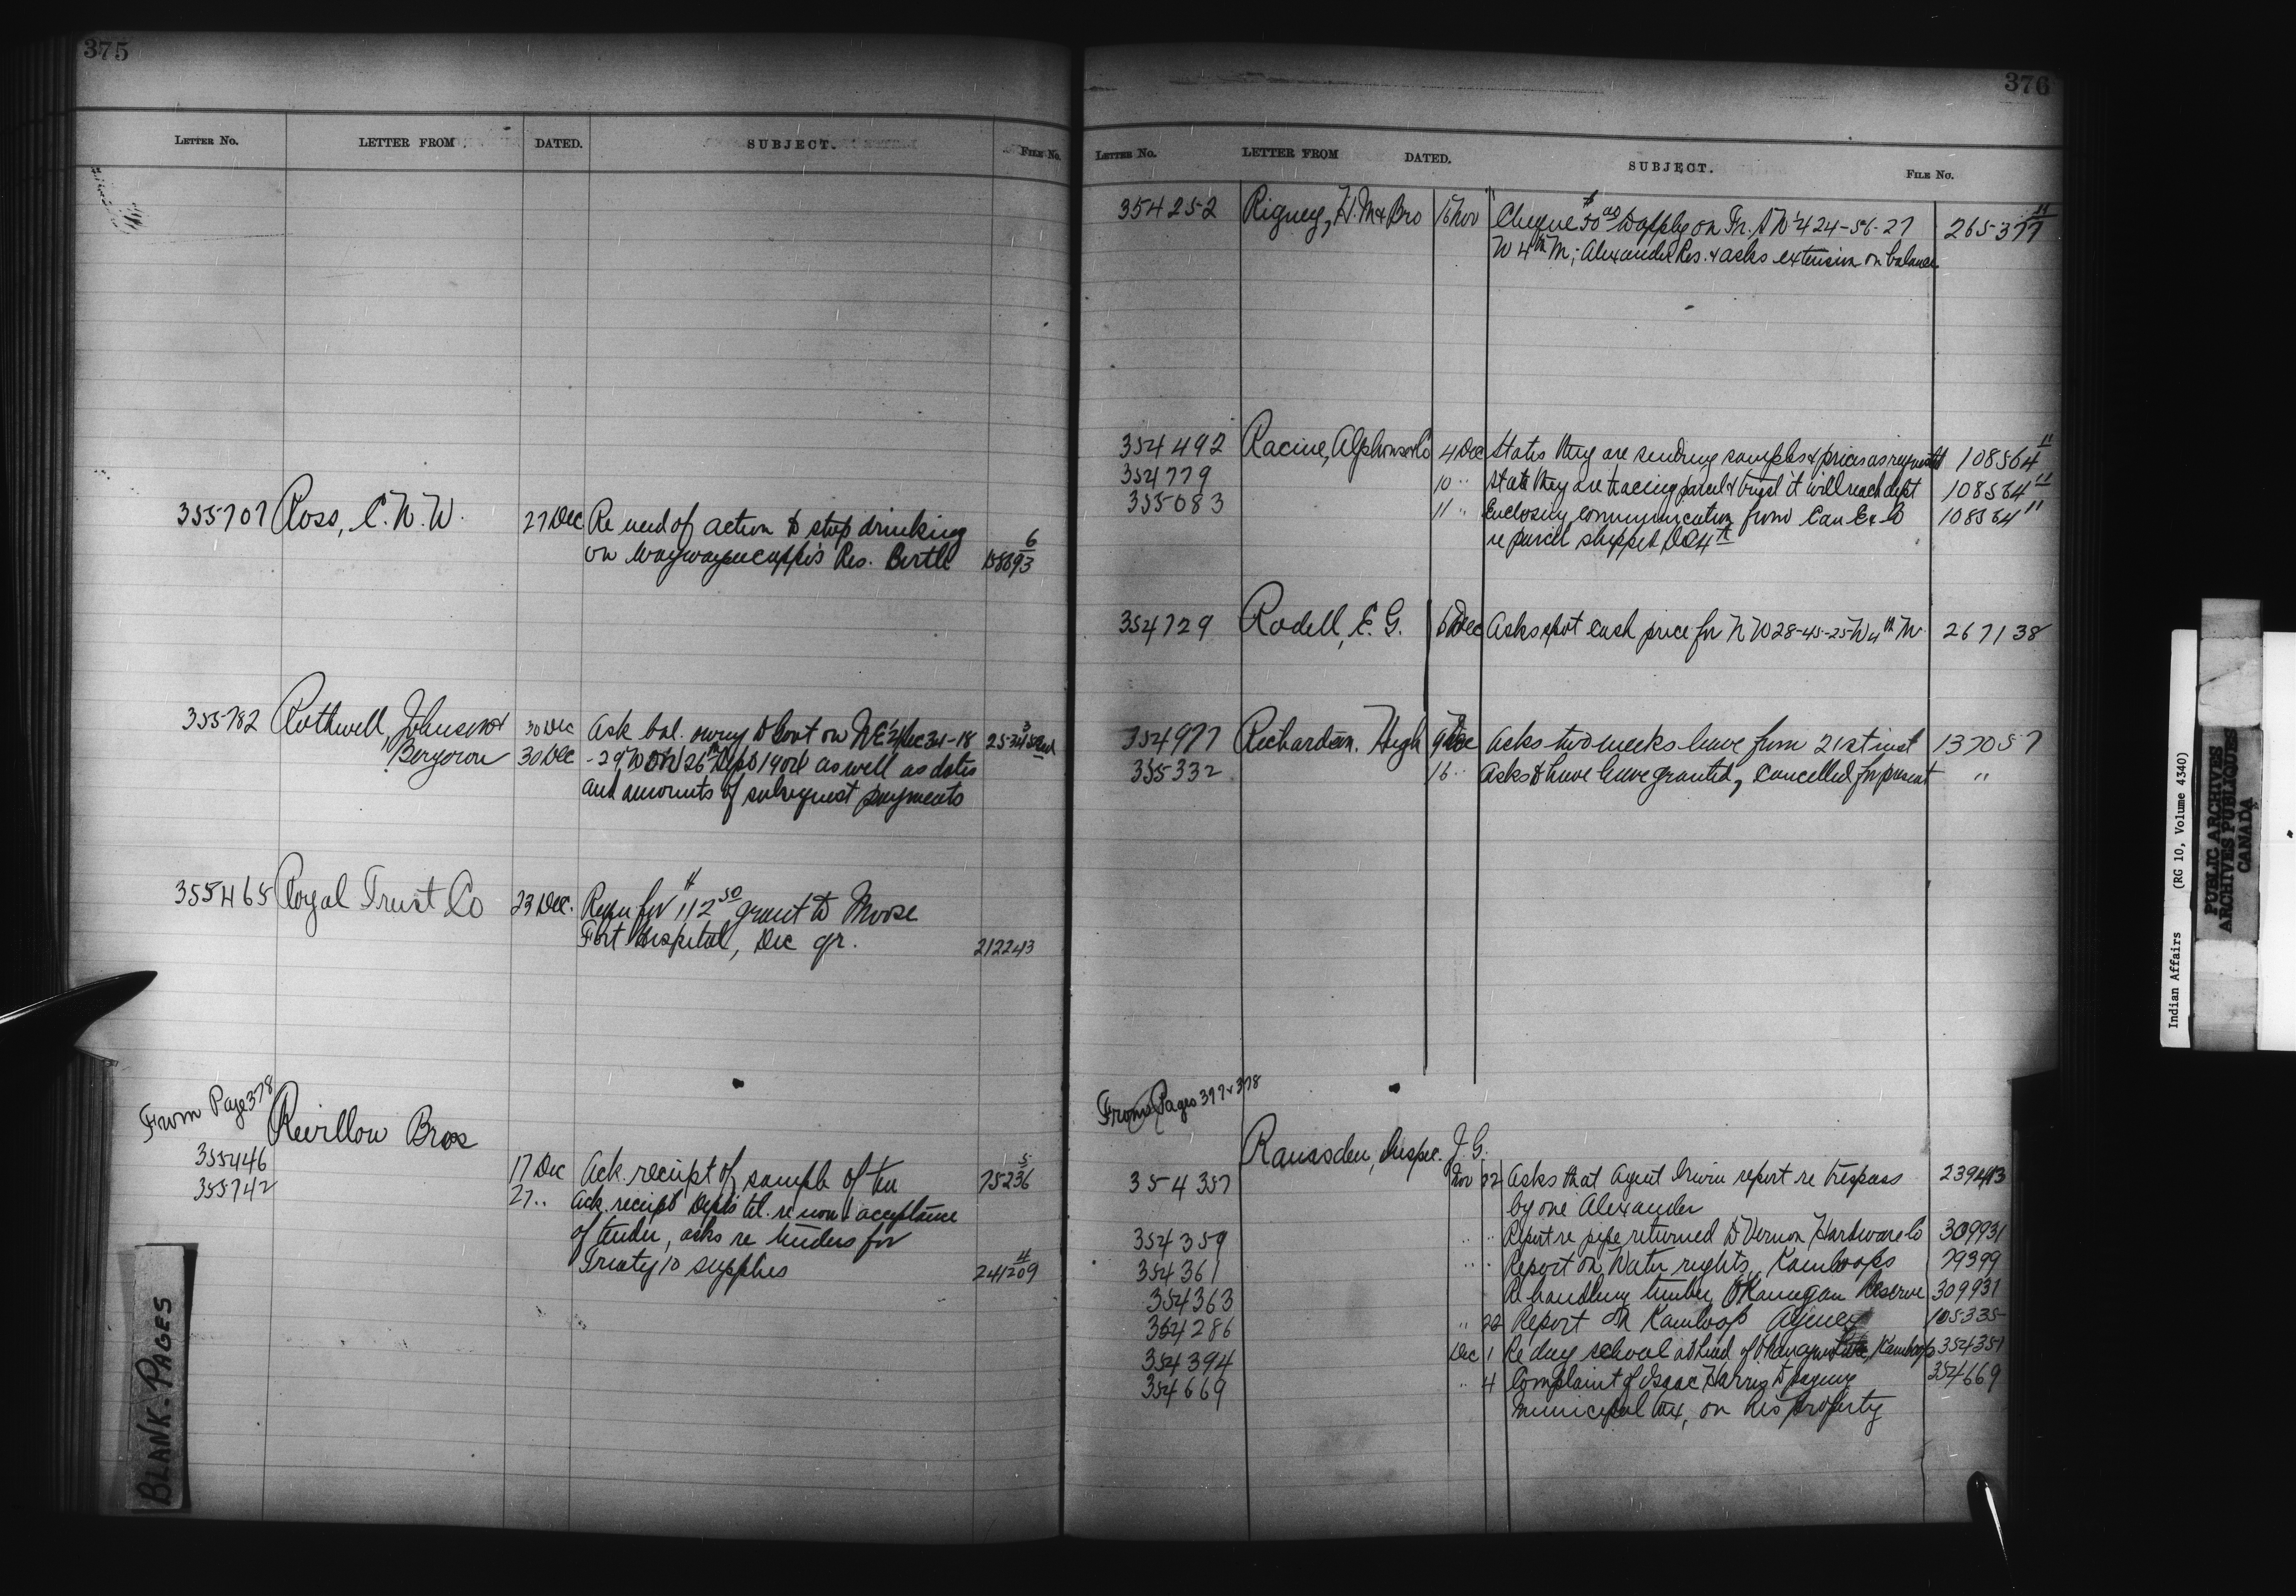 375
LETTER NO. LETTER FROM DATED. SUBJECT. FILE NO.
355707 Ross, C. W. W. 27 Dec Re need of action to stop drinking
on Waywayseecappo's Res. Birtle 6 158693
355782 Rothwell, Johnson & 30 Dec Ask bal. owing to Govt on NE 1/4 Sec 34-18
Bergeron 30 Dec as well as dates
and amounts of subsequent payments
355465 Royal Trust Co 23 Dec. Requ for $112 50 grant to Moose
Fort Hospital, Dec qr. 212243
From Page 378
Revillon Bros
355446 17 Dec Ack. receipt of sample of tea 5 75236
355742 27 .. Ack. receipt Dept's tel. re non acceptance
of tender, asks re tenders for
Treaty 10 supplies 4 241209
BLANK-PAGES
376
LETTER NO. LETTER FROM DATED. SUBJECT. FILE NO.
354252 Rigney, H. M & Bro 16 Nov Cheque $50 00 to apply on Fr. N W 1/4 24-56-27 265377 11
W 4th M; Alexander Res. & asks extension on balance
354492 Racine, Alphonse & Co 4 Dec States they are sending samples & prices as requested 108564 11
354779 10 .. State they are tracing parcel & trust it will reach dept 108564 11
355083 11 .. Enclosing communication from Can Ex Co 108564 11
re parcel shipped Dec 4th
354729 Rodell, E. G. Dec Asks spot cash price for N W 28-45-25 W 4th M. 267138
354977 Richardson, Hugh Dec Asks two weeks leave from 21st inst 137057
355332 16 .. Asks to have leave granted, cancelled for present "
From Pages 377 & 378
Ramsden, Inspec. J. G.
354357 Nov 22 Asks that Agent Irwin report re trespass 239413
by one Alexander
354359 .. .. Report re pipe returned to Vernon Hardware Co 309931
354361 .. .. Report on Water rights, Kamloops 79399
354363 Re handling timber, OKanagan Reserve 309931
354286 .. 22 Report on Kamloop Agency 105335
354394 Dec 1 Re day school at head of Okanagan Lake, Kamloops 354351
354669 .. 4 Complaint of Isaac Harris to paying 354669
municipal tax, on his property
Indian Affairs (RG 10, Volume 4340)
PUBLIC ARCHIVES
ARCHIVES PUBLIQUES
CANADA